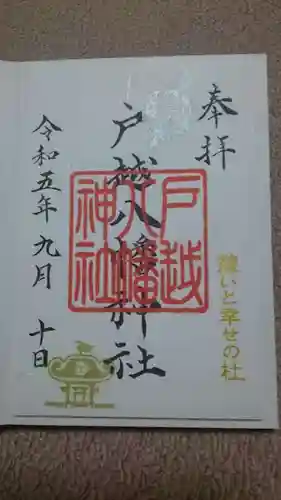 奉拝
戸越八幡神社
戸越
八幡
神社
令和五年九月十日
憩いと幸せの杜